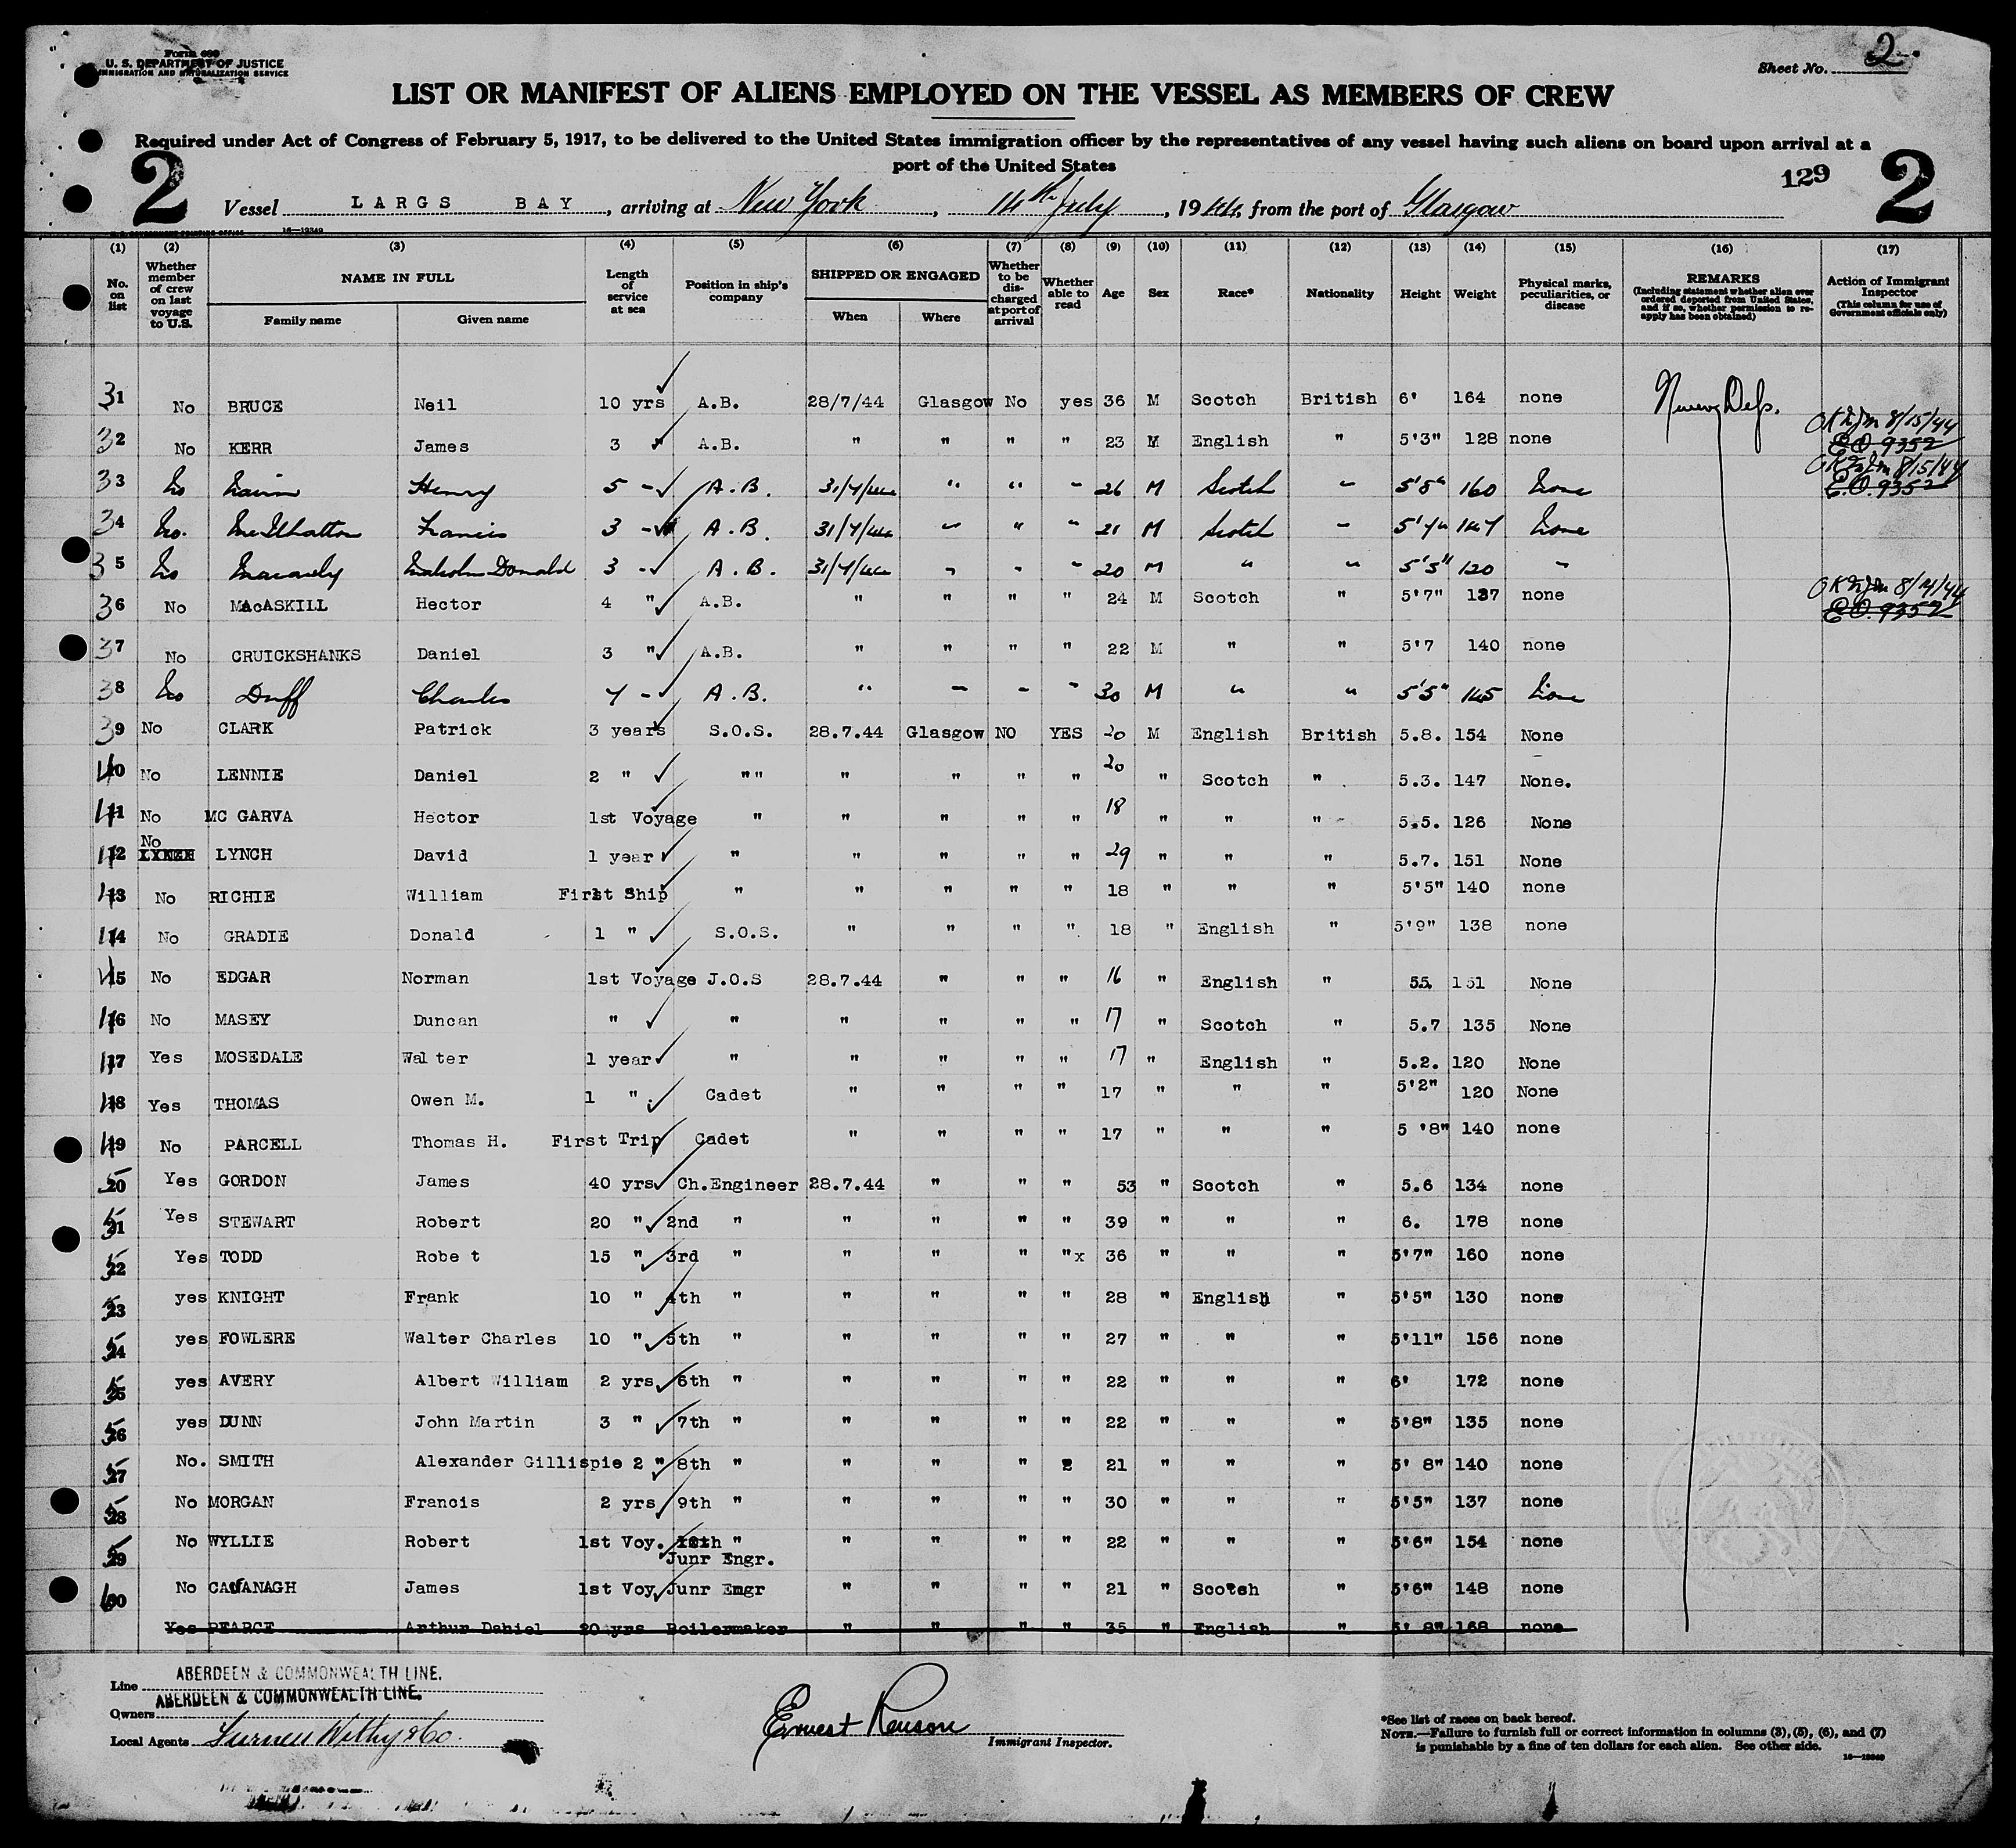 Form 689
U. S. DEPARTMENT OF JUSTICE
IMMIGRATION AND NATURALIZATION SERVICE
Sheet No. 2.
LIST OR MANIFEST OF ALIENS EMPLOYED ON THE VESSEL AS MEMBERS OF CREW
Required under Act of Congress of February 5, 1917, to be delivered to the United States immigration officer by the representatives of any vessel having such aliens on board upon arrival at a
port of the United States
129
2 2
Vessel LARGS BAY, arriving at New York, 14th July, 1944, from the port of Glasgow
U. S. GOVERNMENT PRINTING OFFICE 16—19349
(1) (2) (3) (4) (5) (6) (7) (8) (9) (10) (11) (12) (13) (14) (15) (16) (17)
No. on list | Whether member of crew on last voyage to U.S. | NAME IN FULL Family name Given name | Length of service at sea | Position in ship's company | SHIPPED OR ENGAGED When Where | Whether to be discharged at port of arrival | Whether able to read | Age | Sex | Race* | Nationality | Height | Weight | Physical marks, peculiarities, or disease | REMARKS (Including statement whether alien ever ordered deported from United States, and if so, whether permission to reapply has been obtained) | Action of Immigrant Inspector (This column for use of Government officials only)
31 No BRUCE Neil 10 yrs A.B. 28/7/44 Glasgow No yes 36 M Scotch British 6' 164 none
32 No KERR James 3 " A.B. " " " " 23 M English " 5'3" 128 none OK 8/15/44 E.O. 9352
33 No Henry 5 - A.B. 31/7/44 " " " 26 M Scotch " 5'8" 160 None OK 8/15/44 E.O. 9352
34 No. McIlhatton Francis 3 - A.B. 31/7/44 " " " 21 M Scotch " 5'7" 147 None
35 No Malcolm Donald 3 - A.B. 31/7/44 " " " 20 M " " 5'5" 120 "
36 No MAcASKILL Hector 4 " A.B. " " " " 24 M Scotch " 5'7" 137 none OK 8/14/44 E.O. 9352
37 No CRUICKSHANKS Daniel 3 " A.B. " " " " 22 M " " 5'7 140 none
38 No Duff Charles 7 - A.B. " " " " 30 M " " 5'5" 145 None
39 No CLARK Patrick 3 years S.O.S. 28.7.44 Glasgow NO YES 20 M English British 5.8. 154 None
40 No LENNIE Daniel 2 " "" " " " " 20 " Scotch " 5.3. 147 None.
41 No MC GARVA Hector 1st Voyage " " " " " 18 " " " 5.5. 126 None
42 No LYNCH David 1 year " " " " " 29 " " " 5.7. 151 None
43 No RICHIE William First Ship " " " " " 18 " " " 5'5" 140 none
44 No GRADIE Donald 1 " S.O.S. " " " " 18 " English " 5'9" 138 none
45 No EDGAR Norman 1st Voyage J.O.S 28.7.44 " " " 16 " English " 55. 151 None
46 No MASEY Duncan " " " " " " 17 " Scotch " 5.7 135 None
47 Yes MOSEDALE Wal ter 1 year " " " " " 17 " English " 5.2. 120 None
48 Yes THOMAS Owen M. 1 " Cadet " " " " 17 " " " 5'2" 120 None
49 No PARCELL Thomas H. First Trip Cadet " " " " 17 " " " 5 '8" 140 none
50 Yes GORDON James 40 yrs Ch.Engineer 28.7.44 " " " 53 " Scotch " 5.6 134 none
51 Yes STEWART Robert 20 " 2nd " " " " " 39 " " " 6. 178 none
52 Yes TODD Robe t 15 " 3rd " " " " "x 36 " " " 5'7" 160 none
53 yes KNIGHT Frank 10 " 4th " " " " " 28 " English " 5'5" 130 none
54 yes FOWLERE Walter Charles 10 " 5th " " " " " 27 " " " 5'11" 156 none
55 yes AVERY Albert William 2 yrs 6th " " " " " 22 " " " 6' 172 none
56 yes DUNN John Martin 3 " 7th " " " " " 22 " " " 5'8" 135 none
57 No. SMITH Alexander Gillispie 2 " 8th " " " " 2 21 " " " 5' 8" 140 none
58 No MORGAN Francis 2 yrs 9th " " " " " 30 " " " 5'5" 137 none
59 No WYLLIE Robert 1st Voy. 10th " " " " " 22 " " " 5'6" 154 none
Junr Engr.
60 No CAVANAGH James 1st Voy Junr Engr " " " " 21 " Scotch " 5'6" 148 none
Yes PEARCE Arthur Daniel 20 yrs Boilermaker " " " " 35 " English " 5' 8" 168 none
Line ABERDEEN & COMMONWEALTH LINE.
Owners ABERDEEN & COMMONWEALTH LINE.
Local Agents Furness Withy & Co.
Ernest Renson
Immigrant Inspector.
*See list of races on back hereof.
NOTE.—Failure to furnish full or correct information in columns (3), (5), (6), and (7)
is punishable by a fine of ten dollars for each alien. See other side.
16—19349